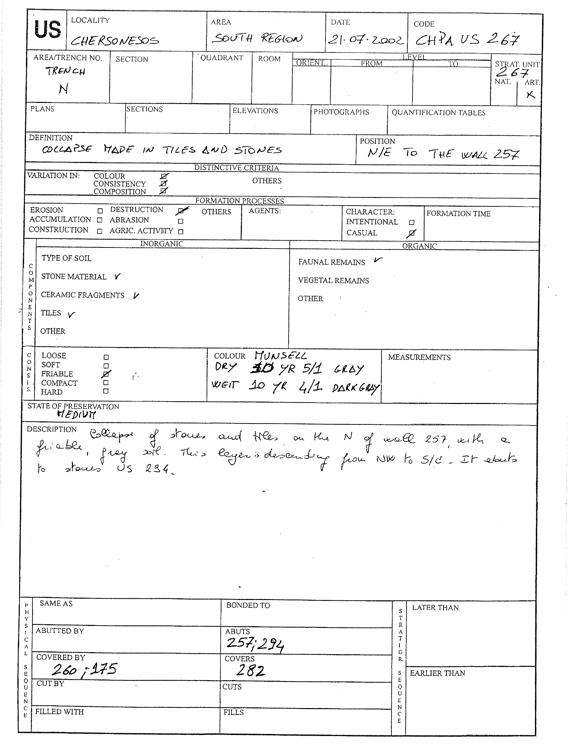 US
LOCALITY
CHERSONESOS
AREA
SOUTH REGION
DATE
21.07.2002
CODE
CHPA US 267
AREA/TRENCH NO.
TRENCH
N
SECTION
QUADRANT
ROOM
LEVEL
ORIENT.
FROM
TO
STRAT. UNIT
267
NAT.
ART.
X
PLANS
SECTIONS
ELEVATIONS
PHOTOGRAPHS
QUANTIFICATION TABLES
DEFINITION
COLLAPSE MADE IN TILES AND STONES
POSITION
N/E TO THE WALL 257
DISTINCTIVE CRITERIA
VARIATION IN:
COLOUR
CONSISTENCY
COMPOSITION
OTHERS
FORMATION PROCESSES
EROSION
ACCUMULATION
CONSTRUCTION
DESTRUCTION
ABRASION
AGRIC. ACTIVITY
OTHERS
AGENTS:
CHARACTER:
INTENTIONAL
CASUAL
FORMATION TIME
COMPONENTS
INORGANIC
TYPE OF SOIL
STONE MATERIAL ✓
CERAMIC FRAGMENTS ✓
TILES ✓
OTHER
ORGANIC
FAUNAL REMAINS ✓
VEGETAL REMAINS
OTHER
CONSIS.
LOOSE
SOFT
FRIABLE
COMPACT
HARD
COLOUR MUNSELL
DRY 10 YR 5/1 GRAY
WEIT 10 YR 4/1 DARKGRAY
MEASUREMENTS
STATE OF PRESERVATION
MEDIUM
DESCRIPTION Collapse of stones and tiles on the N of wall 257, with a
friable, grey soil. This layer is descending from NW to S/E. It abuts
to stones US 294.
PHYSICAL SEQUENCE
SAME AS
BONDED TO
ABUTTED BY
ABUTS
257; 294
COVERED BY
260; 175
COVERS
282
CUT BY
CUTS
FILLED WITH
FILLS
STRATIGR. SEQUENCE
LATER THAN
EARLIER THAN